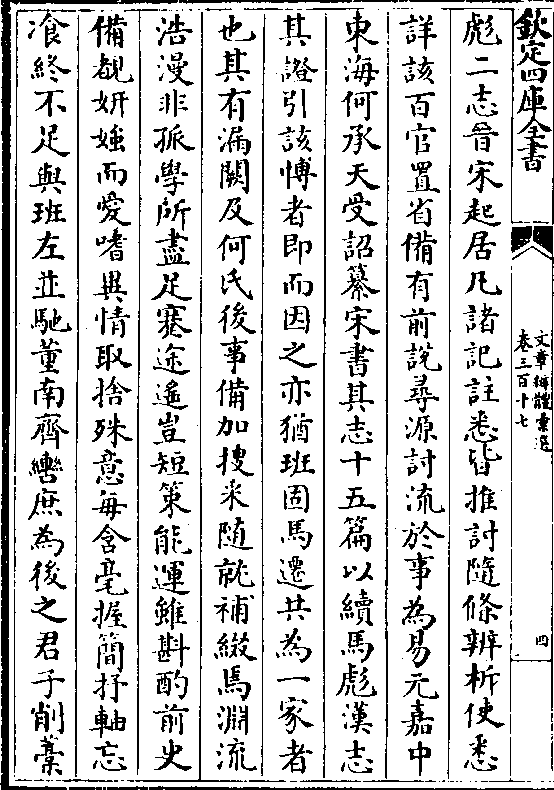 欽定四庫全書
文章辨體彙選
卷三百十七
四
彪二志晉宋起居凡諸記註悉皆推討隨條辨析使悉
詳該百官置省備有前說尋源討流於事為易元嘉中
東海何承天受詔纂宋書其志十五篇以續馬彪漢志
其證引該愽者即而因之亦猶班固馬遷共為一家者
也其有漏闕及何氏後事備加搜采随就補綴焉淵流
浩漫非孤學所盡足蹇途遙豈短策能運雖斟酌前史
備覩妍媸而愛嗜異情取捨殊意每含毫握簡抒軸忘
飡終不足與班左並馳董南齊轡庶為後之君子削藁